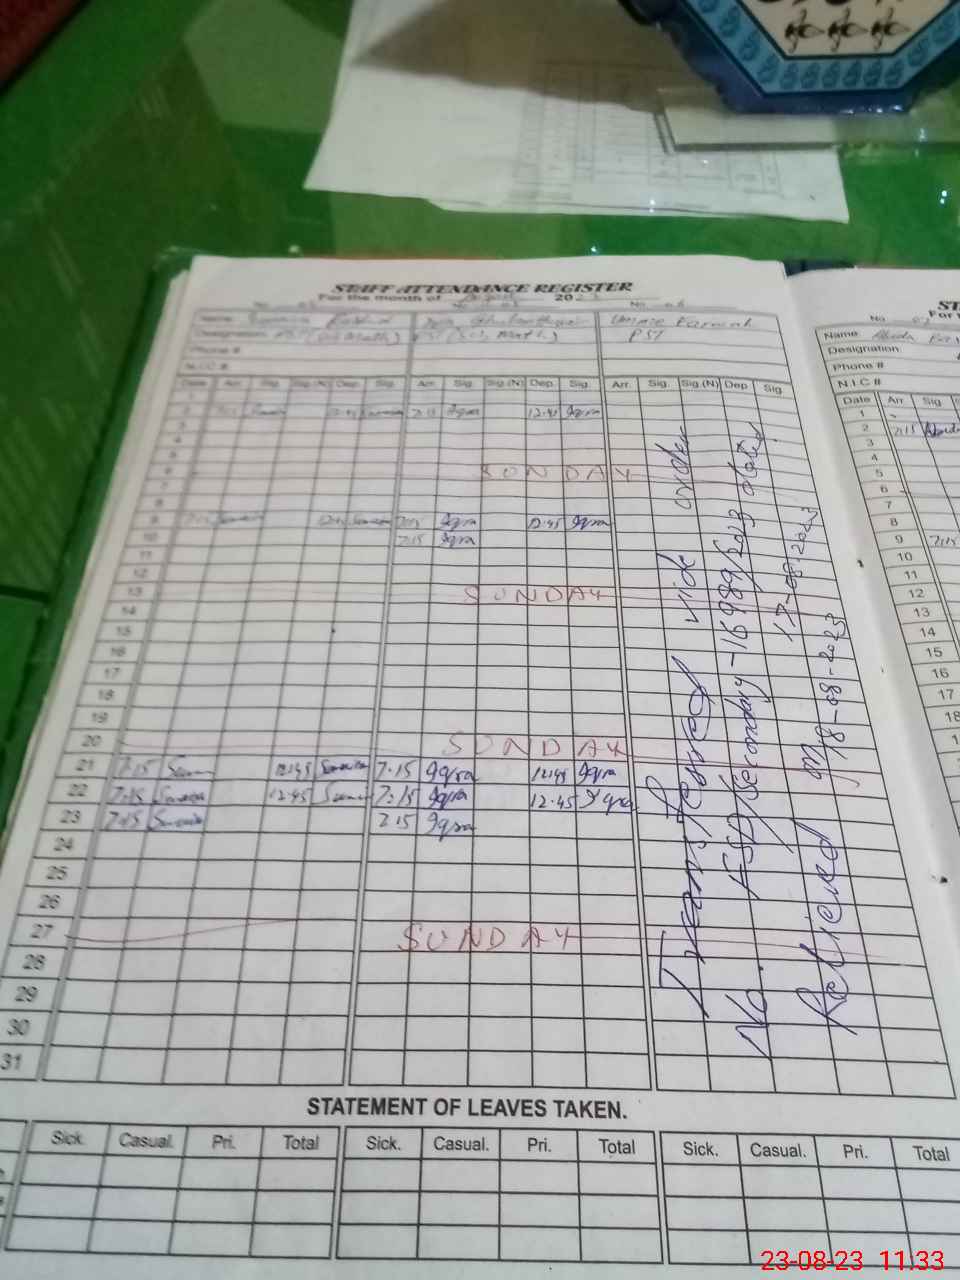 STAFF ATTENDANCE REGISTER
For the month of 2023
No. No. 06
Name Ummie
Designation (Sci, Math) PST
Phone #
N.I.C #
Date Arr. Sig. Sig.(N) Dep. Sig. Arr. Sig. Sig.(N) Dep. Sig. Arr. Sig. Sig.(N) Dep. Sig.
1
2 7:15 12:45 7:15 Iqra 12:45 Iqra
3
4
5
6 SUNDAY
7
8
9 7:15 12:45 7:15 Iqra 12:45 Iqra
10 7:15 Iqra
11
12
13 SUNDAY
14
15
16
17
18
19
20 SUNDAY
21 7:15 12:45 7:15 Iqra 12:45 Iqra
22 7:15 12:45 7:15 Iqra 12:45 Iqra
23 7:15 7:15 Iqra
24
25
26
27 SUNDAY
28
29
30
31
Transfered vide order
No. /Secondary-16989/2023 dated
17-08-2023
Relieved on 18-08-2023
STATEMENT OF LEAVES TAKEN.
Sick. Casual. Pri. Total Sick. Casual. Pri. Total Sick. Casual. Pri. Total
ST
For
No. 07
Name: Abida
Designation.
Phone #
N.I.C #
Date Arr. Sig.
1
2 7:15
3
4
5
6
7
8
9 7:15
10
11
12
13
14
15
16
17
18
23-08-23 11:33